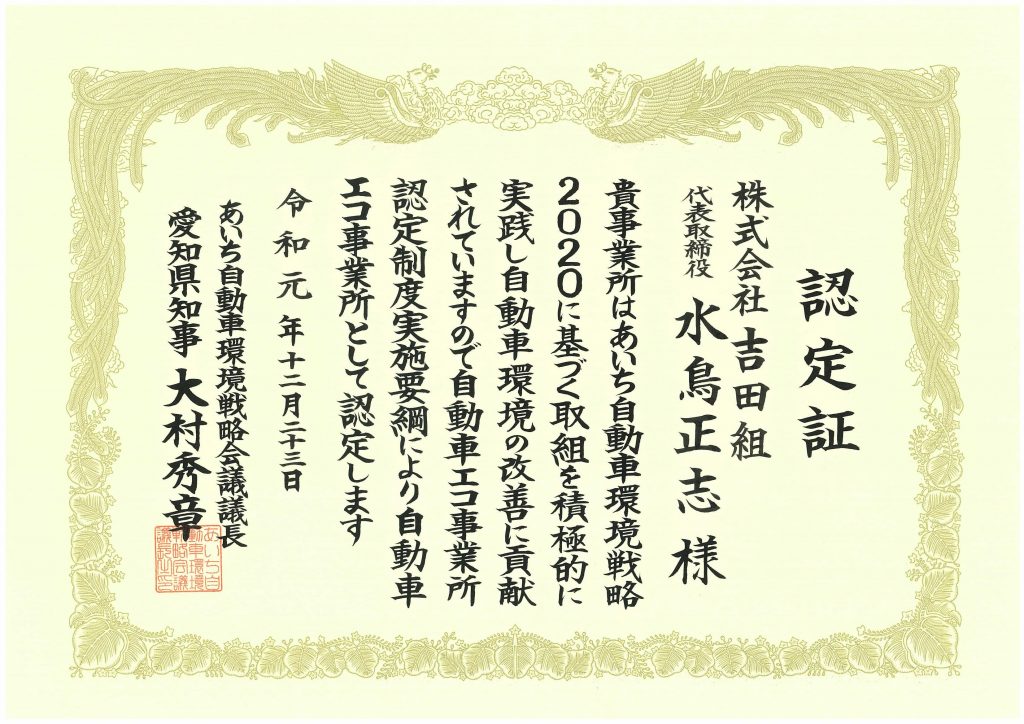 認定証
株式会社 吉田組
代表取締役 水鳥正志 様
貴事業所はあいち自動車環境戦略
2020に基づく取組を積極的に
実践し自動車環境の改善に貢献
されていますので自動車エコ事業所
認定制度実施要綱により自動車
エコ事業所として認定します
令和元年十二月二十三日
あいち自動車環境戦略会議議長
愛知県知事 大村秀章
あいち自
動車環境
戦略会議
議長之印